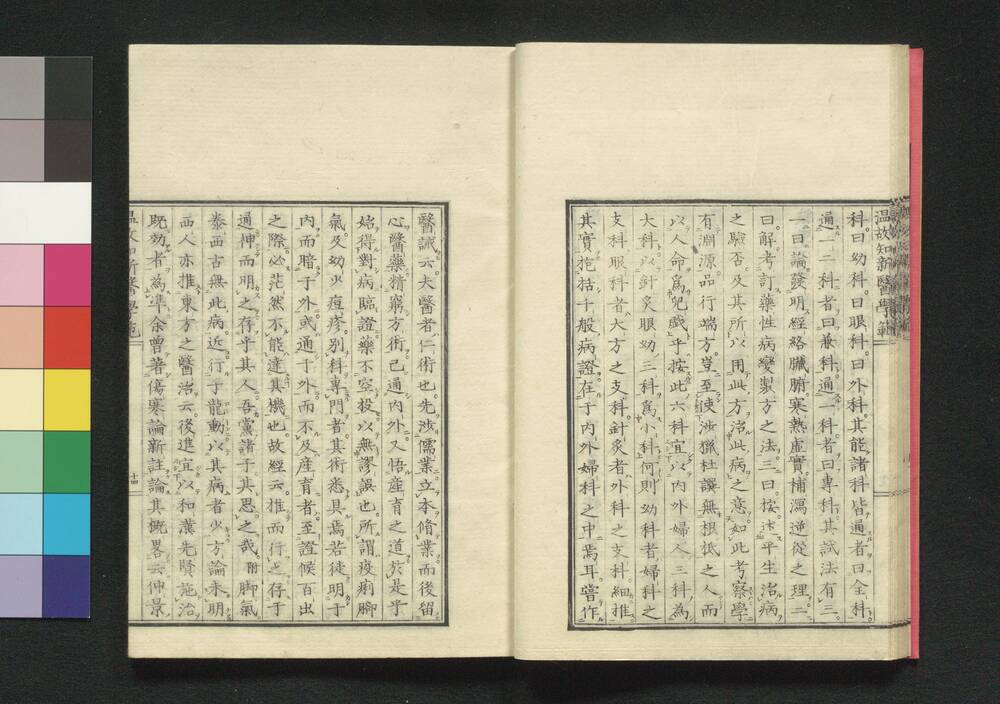 温故知新醫學範
科曰幼科曰眼科曰外科其能諸科皆通者曰全科
通一二科者曰兼科通一科者曰專科其試法有三
一曰論發明經絡臟腑寒熱虛實補瀉逆從之理二
曰解考訂藥性病變製方之法三曰按述平生治病
之驗否及其所以用此方治此病之意如此考察學
有淵源品行端方豈至使涉獵杜譔無根抵之人而
以人命爲兒戲乎按此六科宜以内外婦人三科爲
大科以針炙眼幼三科爲小科何則幼科者婦科之
支科眼科者大方之支科針炙者外科之支科細推
其實抱括千般病證在于内外婦科之中焉耳嘗作
醫誡云夫醫者仁術也先涉儒業立本脩業而後留
心醫藥精窮方術已通内外又悟産育之道於是乎
始得對病臨證藥不空投以無謬誤也所謂疫痢脚
氣及幼少痘疹别科專門者其術悉具焉若徒明于
内而暗于外或通于外而不及産育者至證候百出
之際必茫然不能達其機也故經云推而行之存于
通神而明之存乎其人吾黨諸子其思之哉附脚氣
泰西古無此病近行于龍動以其病者少方論未明
西人亦推東方之醫治云後進宜以和漢先賢施治
既効者為準余曾著傷寒論新註論其概畧云仲景
温故知新醫學範
十四